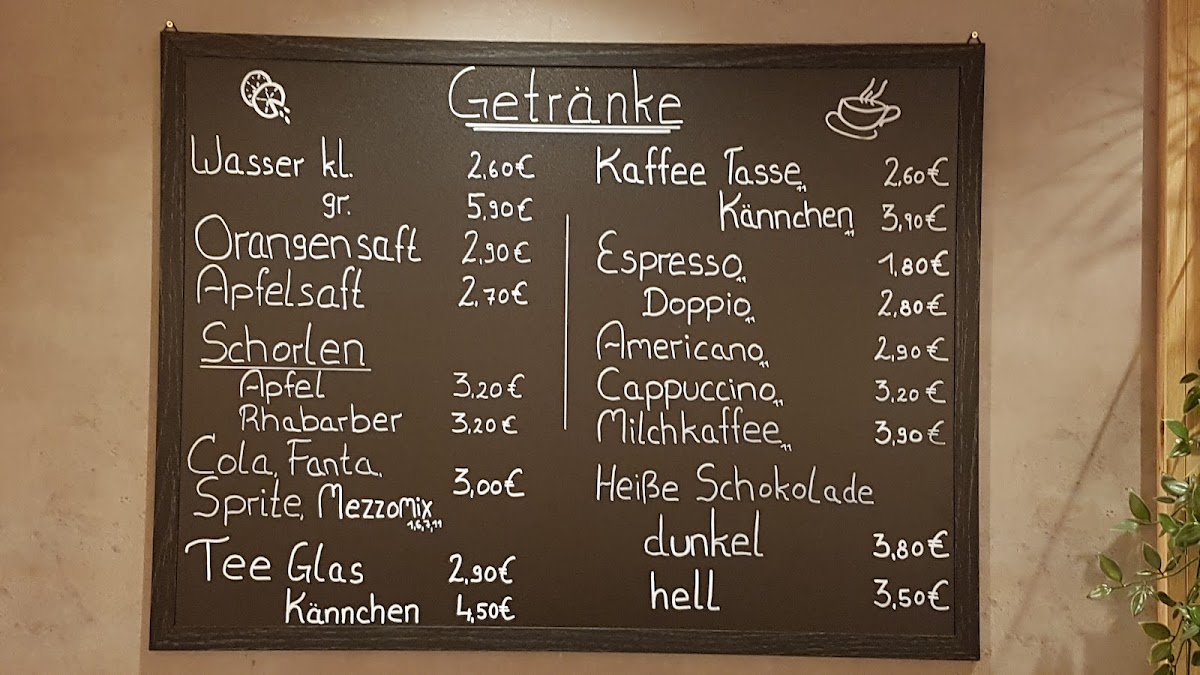 Getränke
Wasser kl. 2,60€
gr. 5,90€
Orangensaft 2,90€
Apfelsaft 2,70€
Schorlen
Apfel 3,20€
Rhabarber 3,20€
Cola, Fanta,
Sprite, Mezzomix 1,6,7,11 3,00€
Tee Glas 2,90€
Kännchen 4,50€
Kaffee Tasse 11 2,60€
Kännchen 11 3,90€
Espresso 11 1,80€
Doppio 11 2,80€
Americano 11 2,90€
Cappuccino 11 3,20€
Milchkaffee 11 3,90€
Heiße Schokolade
dunkel 3,80€
hell 3,50€